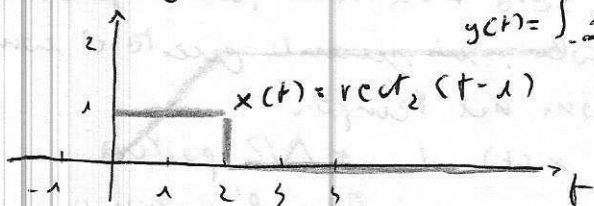 y(t) = ∫
2
x(t) = rect₂ (t-1)
1
-1 1 2 3 3 t